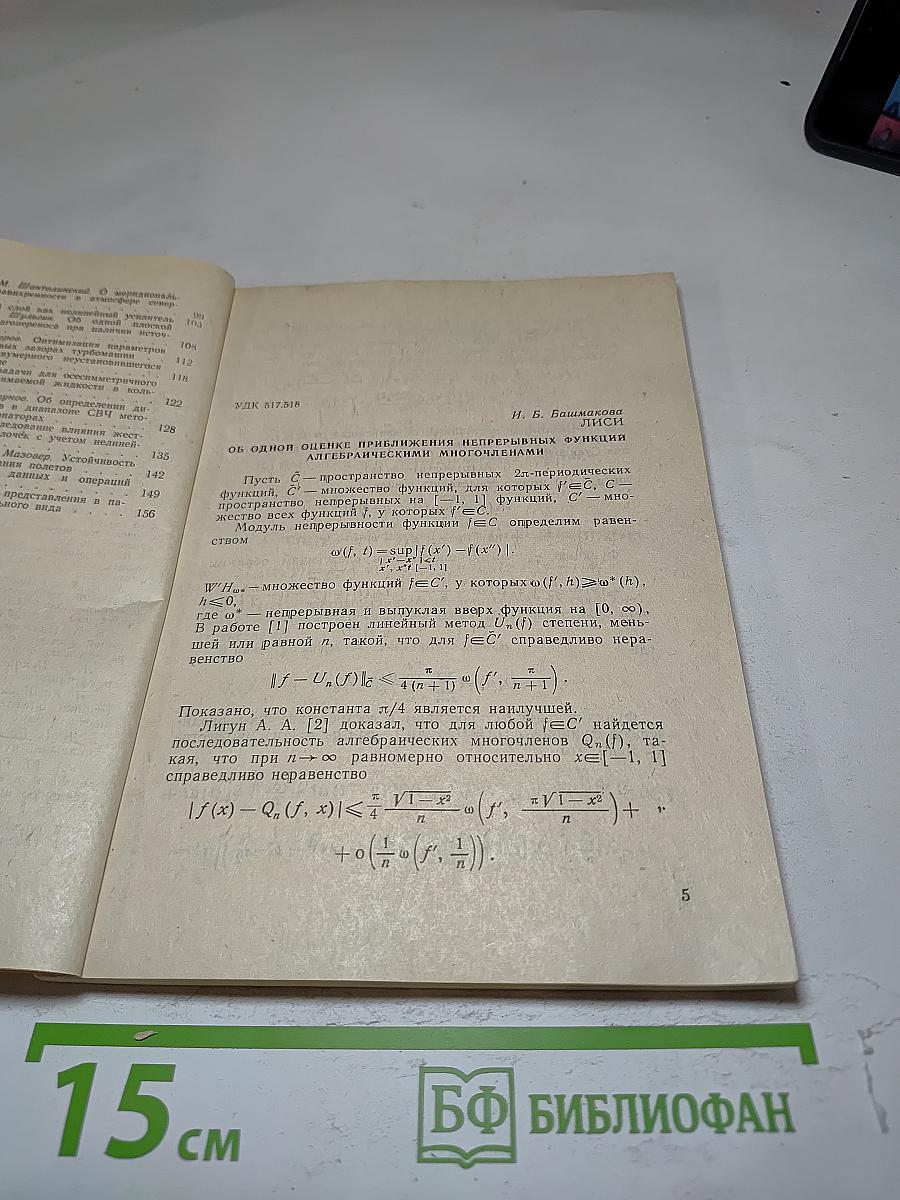 М. Шантолинский. О меридиональ-
авихренности в атмосфере север-
99
слой как нелинейный усилитель
Шульгин. Об одной плоской
103
агопереноса при наличии источ-
108
оров. Оптимизация параметров
вых зазорах турбомашин
112
двумерного неустановившегося
118
задачи для осесимметричного
жимаемой жидкости в коль-
122
унов. Об определении ди-
в в диапазоне СВЧ мето-
128
онаторах
ледование влияния жест-
лочек с учетом нелиней-
135
Мазовер. Устойчивость
142
ания полетов
данных и операций
149
представления в па-
льного вида . . . . 156
УДК 517.518
И. Б. Башмакова
ЛИСИ
ОБ ОДНОЙ ОЦЕНКЕ ПРИБЛИЖЕНИЯ НЕПРЕРЫВНЫХ ФУНКЦИЙ
АЛГЕБРАИЧЕСКИМИ МНОГОЧЛЕНАМИ
Пусть C̃ — пространство непрерывных 2π-периодических
функций, C̃′ — множество функций, для которых f′∈C̃, C —
пространство непрерывных на [—1, 1] функций, C′ — мно-
жество всех функций f, у которых f′∈C.
Модуль непрерывности функции f∈C определим равен-
ством
ω(f, t) = sup |f(x′) — f(x″)|.
|x′—x″|≤t
x′, x″∈[—1, 1]
W′H_ω* — множество функций f∈C′, у которых ω(f′, h)≥ω*(h),
h≤0,
где ω* — непрерывная и выпуклая вверх функция на [0, ∞),
В работе [1] построен линейный метод Uₙ(f) степени, мень-
шей или равной n, такой, что для f∈C̃′ справедливо нера-
венство
‖f — Uₙ(f)‖_C̃ ≤ π/4(n+1) ω(f′, π/n+1).
Показано, что константа π/4 является наилучшей.
Лигун А. А. [2] доказал, что для любой f∈C′ найдется
последовательность алгебраических многочленов Qₙ(f), та-
кая, что при n→∞ равномерно относительно x∈[—1, 1]
справедливо неравенство
|f(x) — Qₙ(f, x)| ≤ π/4 √1—x²/n ω(f′, π√1—x²/n) +
+ o(1/n ω(f′, 1/n)).
5
15 см
БФ БИБЛИОФАН